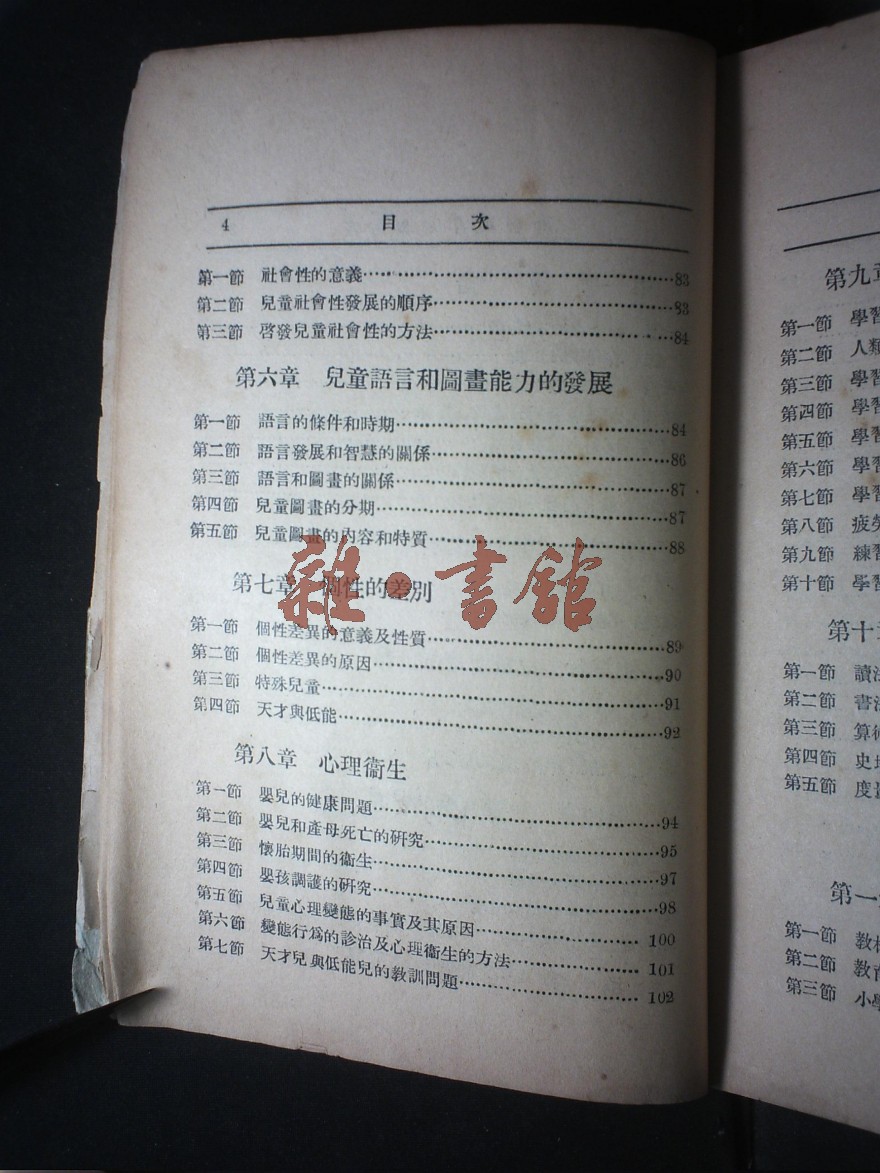 4 目次
第一節 社會性的意義……83
第二節 兒童社會性發展的順序……83
第三節 啓發兒童社會性的方法……84
第六章 兒童語言和圖畫能力的發展
第一節 語言的條件和時期……84
第二節 語言發展和智慧的關係……86
第三節 語言和圖畫的關係……87
第四節 兒童圖畫的分期……87
第五節 兒童圖畫的內容和特質……88
第七章 個性的差別
第一節 個性差異的意義及性質……89
第二節 個性差異的原因……90
第三節 特殊兒童……91
第四節 天才與低能……92
第八章 心理衞生
第一節 嬰兒的健康問題……94
第二節 嬰兒和產母死亡的研究……95
第三節 懷胎期間的衞生……97
第四節 嬰孩調護的研究……98
第五節 兒童心理變態的事實及其原因……100
第六節 變態行爲的診治及心理衞生的方法……101
第七節 天才兒與低能兒的教訓問題……102
雜·書館
第九章
第一節 學習
第二節 人類
第三節 學習
第四節 學習
第五節 學習
第六節 學習
第七節 學習
第八節 疲勞
第九節 練習
第十節 學習
第十
第一節 讀法
第二節 書法
第三節 算術
第四節 史
第五節 度
第一
第一節 教
第二節 教育
第三節 小學